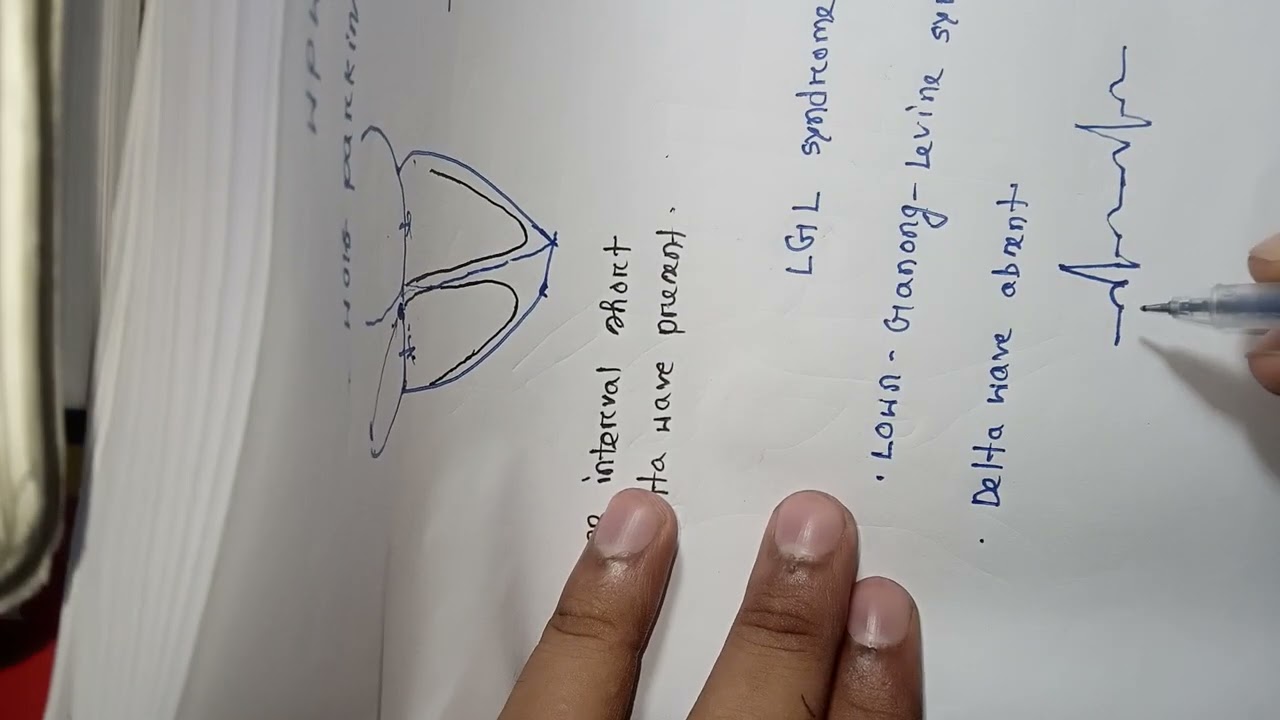 WPW
Wolf parkin
interval short
ta wave present.
LGL syndrome
• Lown - Ganong - Levine sy
• Delta wave absent